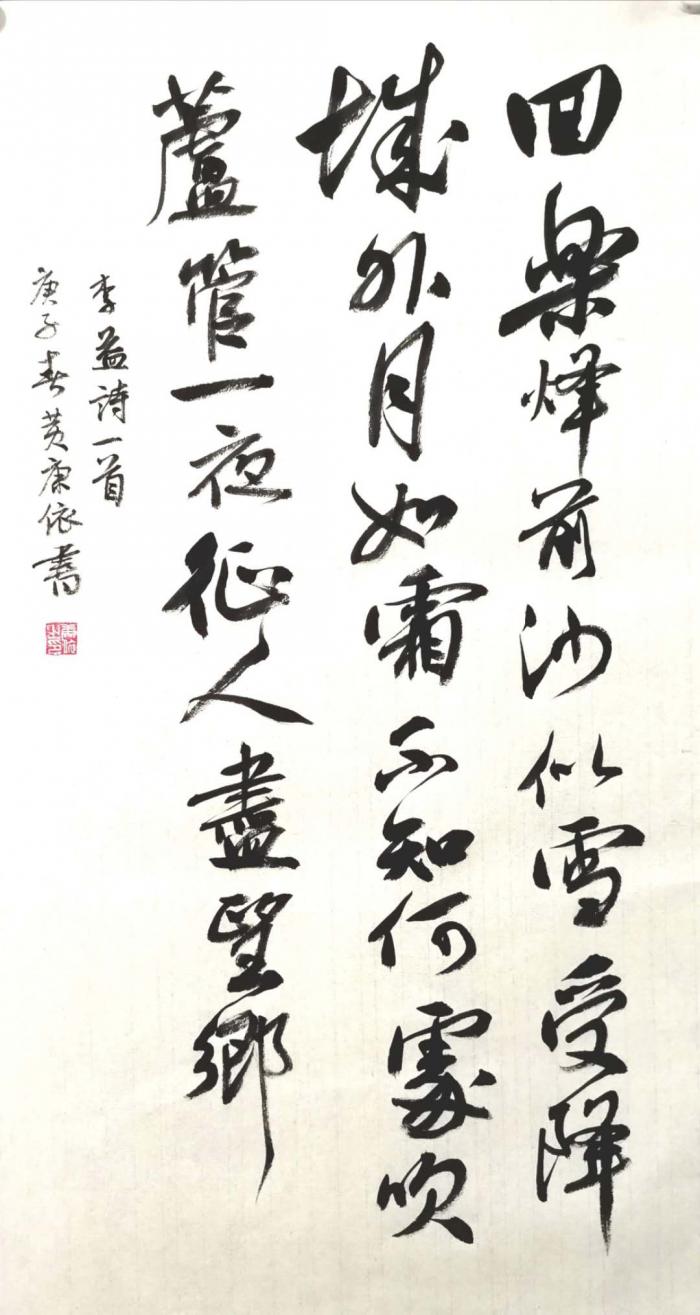 回樂烽前沙似雪受降
城外月如霜不知何處吹
蘆管一夜征人盡望鄉
李益詩一首
庚子春黄康依書